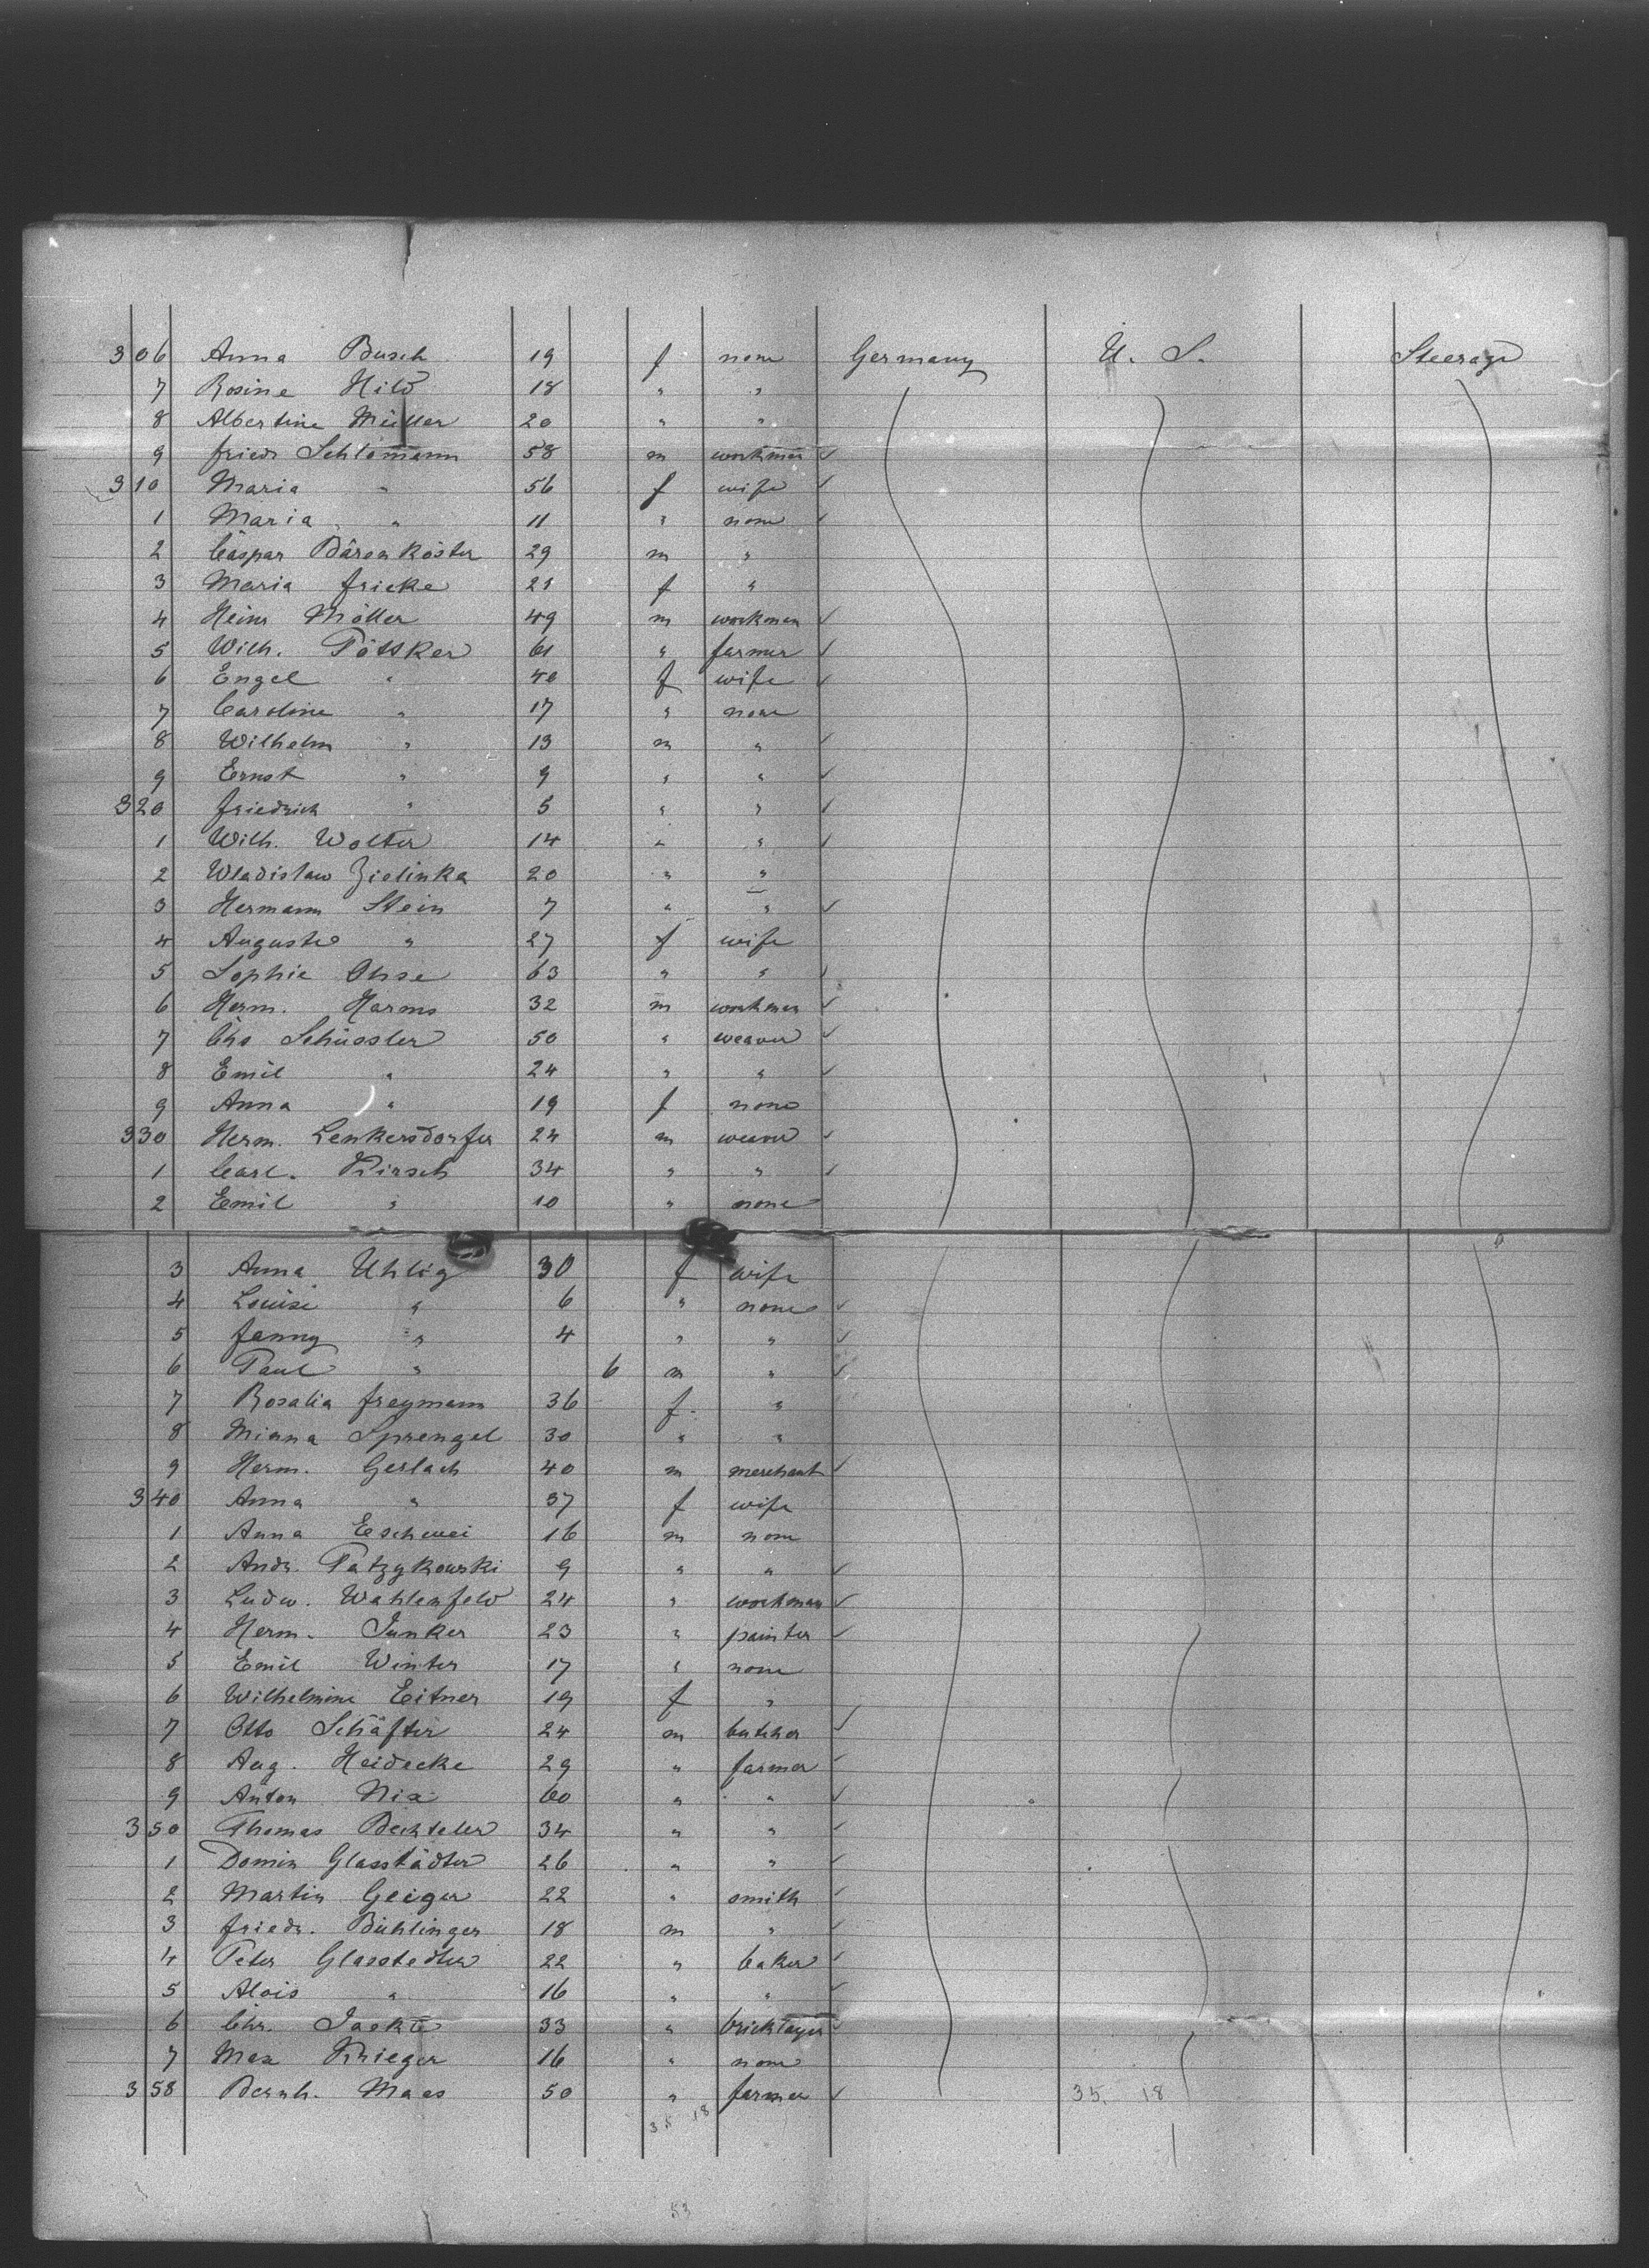 306 Anna Busch 19 f none Germany U. S. Steerage
7 Rosine Hild 18 " "
8 Albertine Müller 20 " "
9 Friedr Schlömann 58 m workman ✓
310 Maria " 56 f wife ✓
1 Maria " 11 " none ✓
2 Caspar Bärenköster 29 m "
3 Maria Fricke 21 f "
4 Heinr Möller 49 m workman ✓
5 Wilh. Pöttker 61 " farmer ✓
6 Engel " 40 f wife ✓
7 Caroline " 17 " none
8 Wilhelm " 13 m " ✓
9 Ernst " 9 " " ✓
320 Friedrich " 5 " " ✓
1 Wilh. Wolter 14 " " ✓
2 Wladislaw Zielinka 20 " "
3 Hermann Stein 7 " " ✓
4 Auguste " 27 f wife
5 Sophie Ohse 63 " " ✓
6 Herm. Harms 32 m workman ✓
7 Chs Schüssler 50 " weaver ✓
8 Emil " 24 " " ✓
9 Anna " 19 f none
330 Herm. Lenkersdorfer 24 m weaver ✓
1 Carl. Kirsch 34 " " ✓
2 Emil " 10 " none
3 Anna Uhlig 30 f wife
4 Louise " 6 " none ✓
5 Fanny " 4 " " ✓
6 Paul " 6 m " ✓
7 Rosalia Freymann 36 f "
8 Minna Sprengel 30 " "
9 Herm. Gerlach 40 m merchant ✓
340 Anna " 37 f wife
1 Anna Eschwei 16 m none
2 Andr. Patzykowski 9 " " ✓
3 Ludw. Wahlenfeld 24 " workman ✓
4 Herm. Junker 23 " painter ✓
5 Emil Winter 17 " none
6 Wilhelmine Eitner 19 f "
7 Otto Schäfter 24 m butcher ✓
8 Aug. Heidecke 29 " farmer ✓
9 Anton Nix 60 " " ✓
350 Thomas Bechteler 34 " " ✓
1 Domin Glasstädter 26 " " ✓
2 Martin Geiger 22 " smith ✓
3 Friedr. Bühlinger 18 m " ✓
4 Peter Glasstedter 22 " baker ✓
5 Alois " 16 " " ✓
6 Chr. Jackte 33 " bricklayer ✓
7 Max Krieger 16 " none
358 Bernh. Maas 50 " farmer ✓ 35. 18
35 18
53